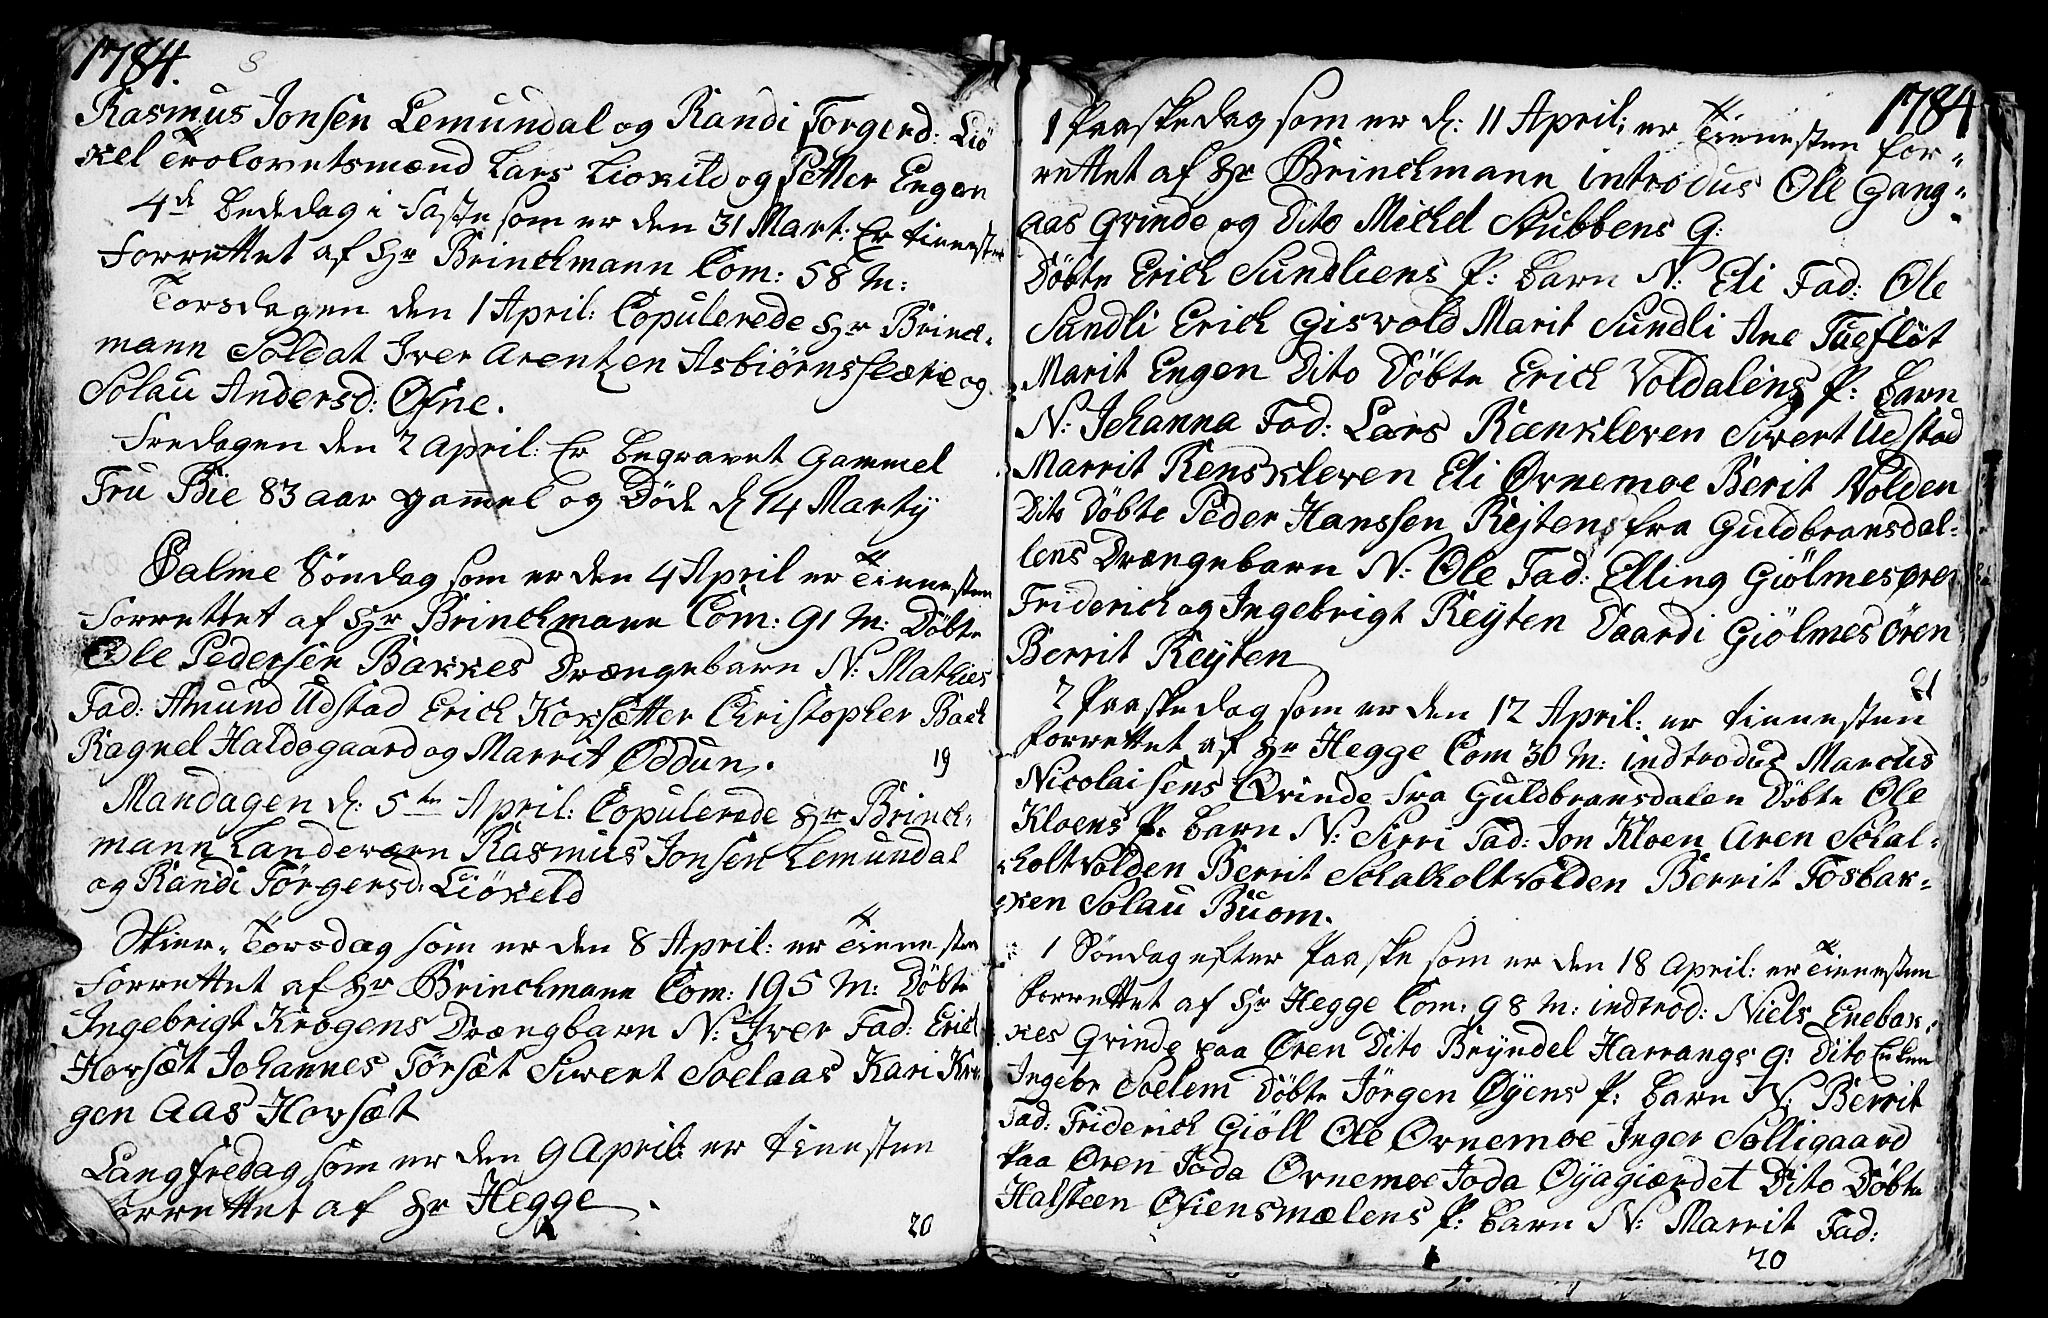 1784.
Rasmus Jonsen Lemundal og Randi Torgersd: Liö
kel Trolovetsmænd Lars Liokild og Petter Engen
4de Bededag i Faste som er den 31 Mart: Er tienesten
Forrettet af Hr Brinchmann Com: 58 M:
Torsdagen den 1 April: Copulerede Hr Brinch-
mann Soldat Iver Arentzen Asbiørnsslætte og
Solau Andersd: Øfne.
Fredagen den 2 April: Er begravet Gammel
Fru Bie 83 aar gammel og Døde d 14 Marty
Palme Söndag som er den 4 April er Tienesten
Forrettet af Hr Brinchmann Com: 91 M: Döbte
Ole Pedersen Bakkes Drængebarn N: Mathies
Fad: Amund Udstad Erich Korsætter Christopher Bach
Ragnel Haldogaard og Marrit Oddun.
19
Mandagen d: 5te April: Copulerede Hr Brinch-
mann Landeværn Rasmus Jonsen Lemundal
og Randi Törgersd: Liökeld
Skier-Torsdag som er den 8 April: er Tienesten
Forrettet af Hr Brinchmann Com: 195 M: Döbte
Ingebrigt Krogens Drængbarn N: Iver Fad: Erich
Horsæt Johannes Törsæt Siwert Soelaas Kari Kro
gen Aas Horsæt
Langfredag som er den 9 April: er tienesten
forrettet af Hr Hegge
20
1784
1 Paaskedag som er d: 11 April: er Tienesten for-
rettet af Hr Brinchmann introdus Ole Gang-
aas qvinde og Dito Michel Stubbens q:
Döbte Erich Sundliens P: barn N: Eli Fad: Ole
Sundli Erich Giswold Marit Sundli Ane Tueflöt
Marit Engen Dito Döbte Erich Voldalens P: barn
N: Johanna Fad: Lars Rænkleven Siwert Udstad
Marrit Rensklewen Eli Ørnemoe Berit Volden
Dito Döbte Peder Hanssen Rejtens fra Guldbransdal-
lens Drængebarn N: Ole Fad: Elling Giölmesøren
Friderich og Ingebrigt Reyten Daardi Giölmesören
Berrit Reyten
21
2 Paaskedag som er den 12 April: er tienesten
forrettet af Hr Hegge Com 30 M: indtrodus Marcus
Nicolaisens Qvinde fra Guldbransdalen Döbte Ole
Kloens P: barn N: Sirri Fad: Jon Kloen Aren Schal-
holtvolden Berrit Schalholtvolden Berrit Fosbak-
ken Solau Buom.
1 Söndag efter Paaske som er den 18 April: er Tienesten
forrettet af Hr Hegge Com: 98 M: indtrod: Niels Enebak-
kes Qvinde paa Øren Dito Bryndel Harrangs q: Dito
Ingebr Soelem Döbte Jörgen Øyens P: barn N: Berrit
Fad: Friderich Giöll Ole Ørnemoe Inger Solligaard
Paa Øren Joda Ørnemoe Joda Øyagiærdet Dito Döbte
Halsteen Øfiensmælens P: barn N: Marrit Fad:
20